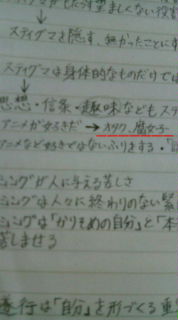 スティグマを隠す、無かったことにす
スティグマは身体的なものだけでは
思想・信条・趣味などもステ
アニメが好きだ→オタク、腐女子
アニメなど好きではないふりをする・「自
シングが人に与える苦しさ
シングは人々に終わりのない緊
シングは「かりそめの自分」と「本
苦しませる
遂行は「自分」を形づくる重